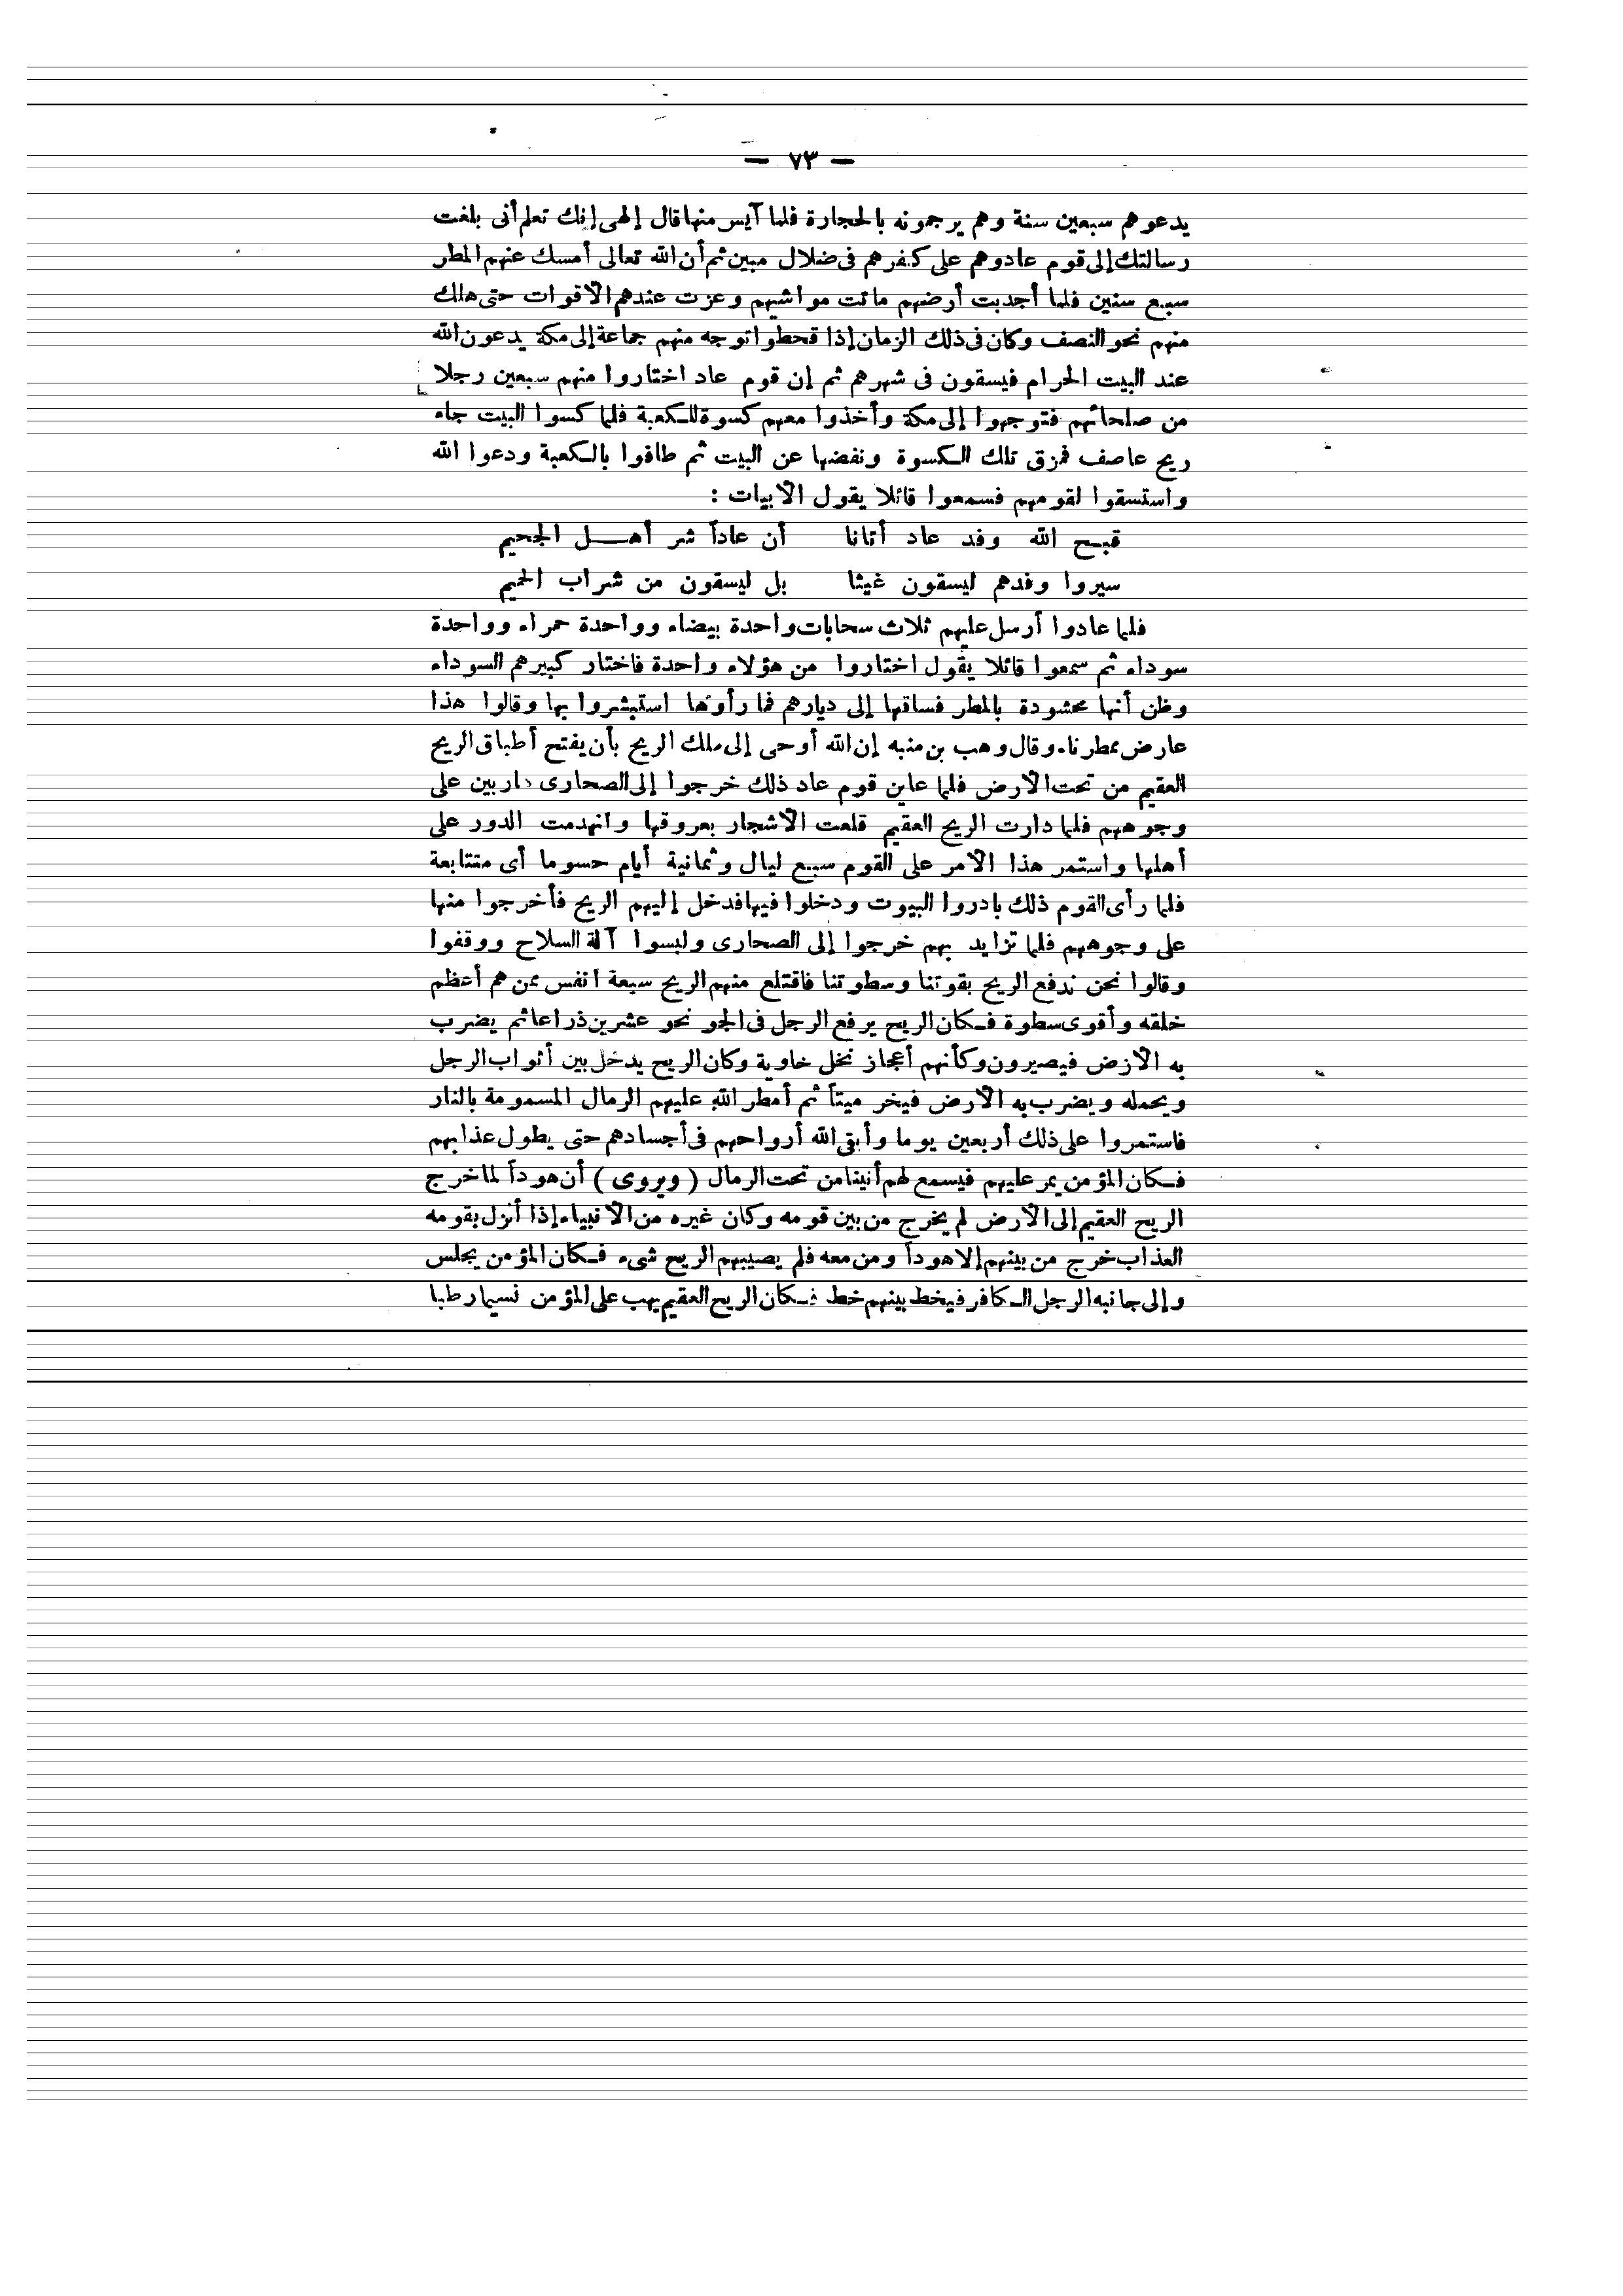 — ٧٣ —
يدعوهم سبعين سنة وهم يرجمونه بالحجارة فلما آيس منها قال إلهى إنك تعلم أنى بلغت
رسالتك إلى قوم عادوهم على كفرهم فى ضلال مبين ثم أن الله تعالى أمسك عنهم المطر
سبع سنين فلما أجدبت أرضهم ماتت مواشيهم وعزت عندهم الأقوات حتى هلك
منهم نحو النصف وكان فى ذلك الزمان إذا قحطوا توجه منهم جماعة إلى مكة يدعون الله
عند البيت الحرام فيسقون فى شهرهم ثم إن قوم عاد اختاروا منهم سبعين رجلا
من صلحائهم فتوجهوا إلى مكة وأخذوا معهم كسوة للكعبة فلما كسوا البيت جاء
ريح عاصف فمزق تلك الكسوة ونفضها عن البيت ثم طافوا بالكعبة ودعوا الله
واستسقوا لقومهم فسمعوا قائلا يقول الأبيات :
قبح الله وفد عاد أتانا أن عاداً شر أهل الجحيم
سيروا وفدهم ليسقون غيثا بل ليسقون من شراب الحميم
فلما عادوا أرسل عليهم ثلاث سحابات واحدة بيضاء وواحدة حمراء وواحدة
سوداء ثم سمعوا قائلا يقول اختاروا من هؤلاء واحدة فاختار كبيرهم السوداء
وظن أنها محشودة بالمطر فساقها إلى ديارهم فما رأوها استبشروا بها وقالوا هذا
عارض ممطرناء وقال وهب بن منبه إن الله أوحى إلى ملك الريح بأن يفتح أطباق الريح
العقيم من تحت الأرض فلما عاين قوم عاد ذلك خرجوا إلى الصحارى داربين على
وجوههم فلما دارت الريح العقيم قلعت الأشجار بعروقها وانهدمت الدور على
أهلها واستمر هذا الأمر على القوم سبع ليال وثمانية أيام حسوما أى متتابعة
فلما رأى القوم ذلك بادروا البيوت ودخلوا فيها فدخل إليهم الريح فأخرجوا منها
على وجوههم فلما تزايد بهم خرجوا إلى الصحارى ولبسوا آلة السلاح ووقفوا
وقالوا نحن ندفع الريح بقوتنا وسطوتنا فاقتلع منهم الريح سبعة أنفس ممن هم أعظم
خلقه وأقوى سطوة فكان الريح يرفع الرجل فى الجو نحو عشرين ذراعا ثم يضرب
به الأرض فيصيرون وكأنهم أعجاز نخل خاوية وكان الريح يدخل بين أثواب الرجل
ويحمله ويضرب به الأرض فيخر ميتاً ثم أمطر الله عليهم الرمال المسمومة بالنار
فاستمروا على ذلك أربعين يوما وأبقى الله أرواحهم فى أجسادهم حتى يطول عذابهم
فكان المؤمن يمر عليهم فيسمع لهم أنينا من تحت الرمال ( ويروى ) أن هوداً لما خرج
الريح العقيم إلى الأرض لم يخرج من بين قومه وكان غيره من الأنبياء إذا أنزل بقومه
العذاب خرج من بينهم إلا هوداً ومن معه فلم يصيبهم الريح شىء فكان المؤمن يجلس
وإلى جانبه الرجل الكافر فيخط بينهم خط فكان الريح العقيم يهب على المؤمن نسيما رطبا